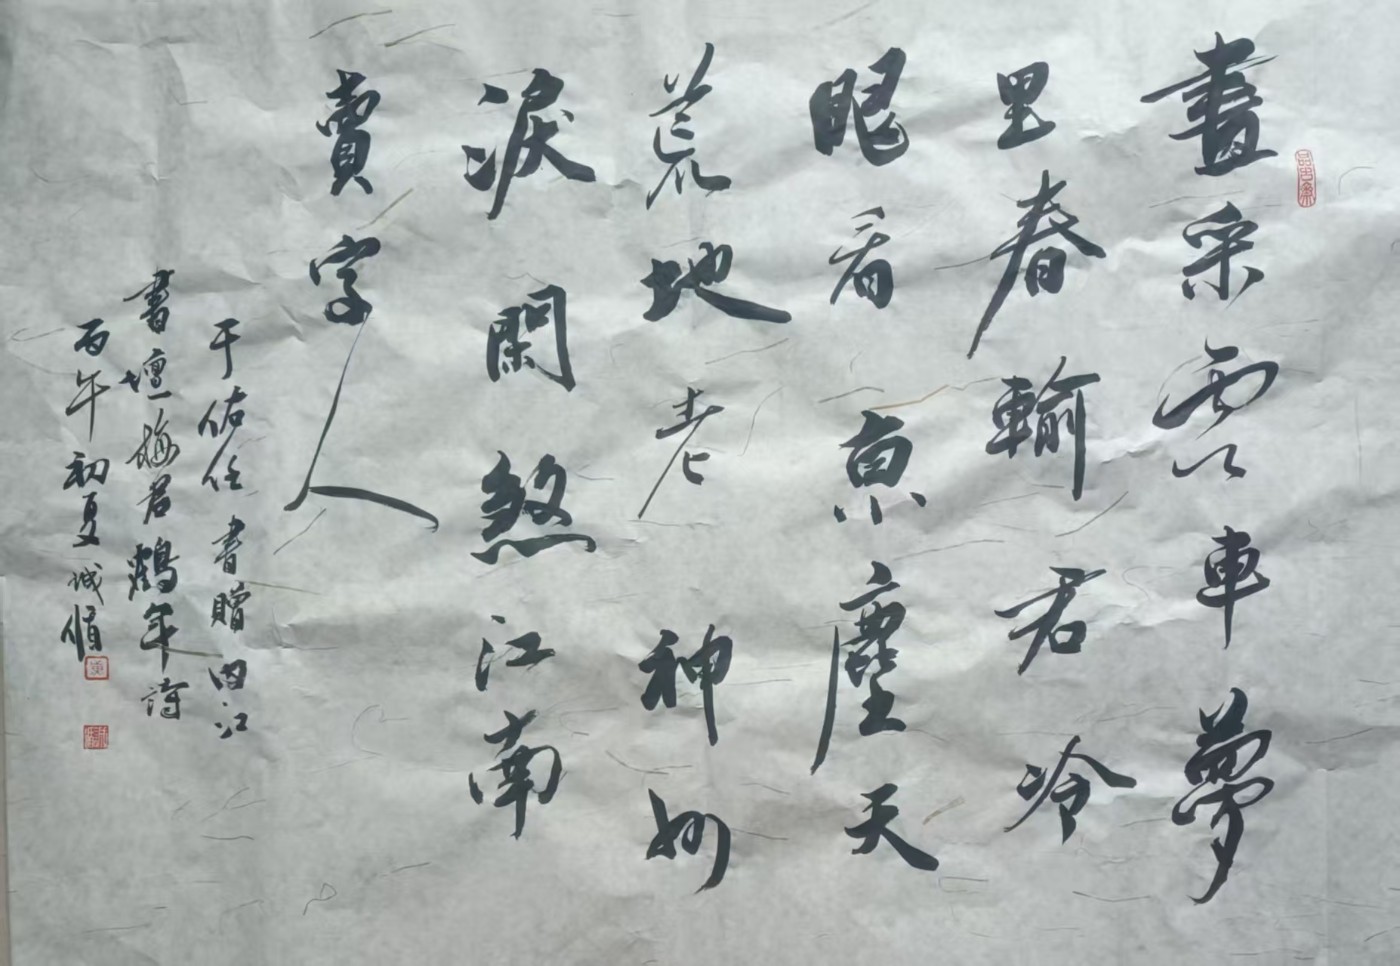 畫采雲車夢
里春輸君冷
眼看京塵天
荒地老神州
淚閑煞江南
賣字人
于佑任書贈内江
書壇梅君鶴年詩
丙午初夏诚